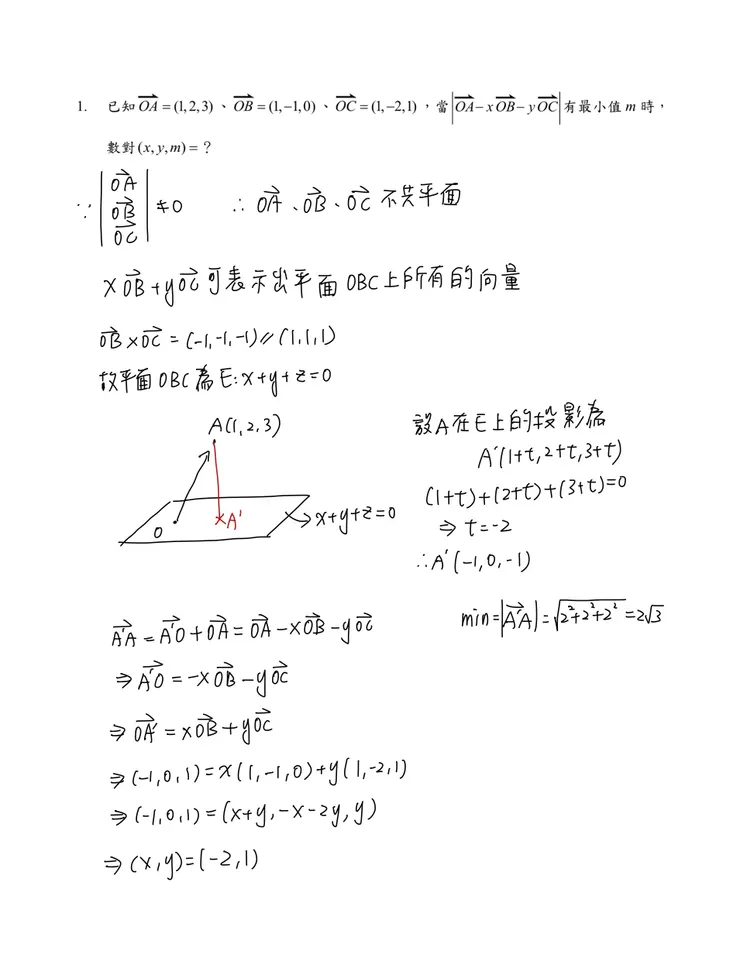 1. 已知 $\overrightarrow{OA}=(1,2,3)$、$\overrightarrow{OB}=(1,-1,0)$、$\overrightarrow{OC}=(1,-2,1)$，當 $\left|\overrightarrow{OA}-x\overrightarrow{OB}-y\overrightarrow{OC}\right|$ 有最小值 m 時，
數對 (x, y, m) = ？
∵ $\begin{vmatrix}\overrightarrow{OA}\\\overrightarrow{OB}\\\overrightarrow{OC}\end{vmatrix}\neq 0$ ∴ $\overrightarrow{OA}$、$\overrightarrow{OB}$、$\overrightarrow{OC}$ 不共平面
$x\overrightarrow{OB}+y\overrightarrow{OC}$ 可表示出平面 OBC 上所有的向量
$\overrightarrow{OB}\times\overrightarrow{OC}=(-1,-1,-1)\parallel(1,1,1)$
故平面 OBC 為 E: x+y+z=0
A(1,2,3)
O
A'
x+y+z=0
設 A 在 E 上的投影為
A'(1+t,2+t,3+t)
(1+t)+(2+t)+(3+t)=0
⇒ t=-2
∴ A'(-1,0,-1)
min=$|\overrightarrow{A'A}|=\sqrt{2^2+2^2+2^2}=2\sqrt{3}$
$\overrightarrow{A'A}=\overrightarrow{A'O}+\overrightarrow{OA}=\overrightarrow{OA}-x\overrightarrow{OB}-y\overrightarrow{OC}$
⇒ $\overrightarrow{A'O}=-x\overrightarrow{OB}-y\overrightarrow{OC}$
⇒ $\overrightarrow{OA'}=x\overrightarrow{OB}+y\overrightarrow{OC}$
⇒ (-1,0,1)=x(1,-1,0)+y(1,-2,1)
⇒ (-1,0,1)=(x+y,-x-2y,y)
⇒ (x,y)=(-2,1)